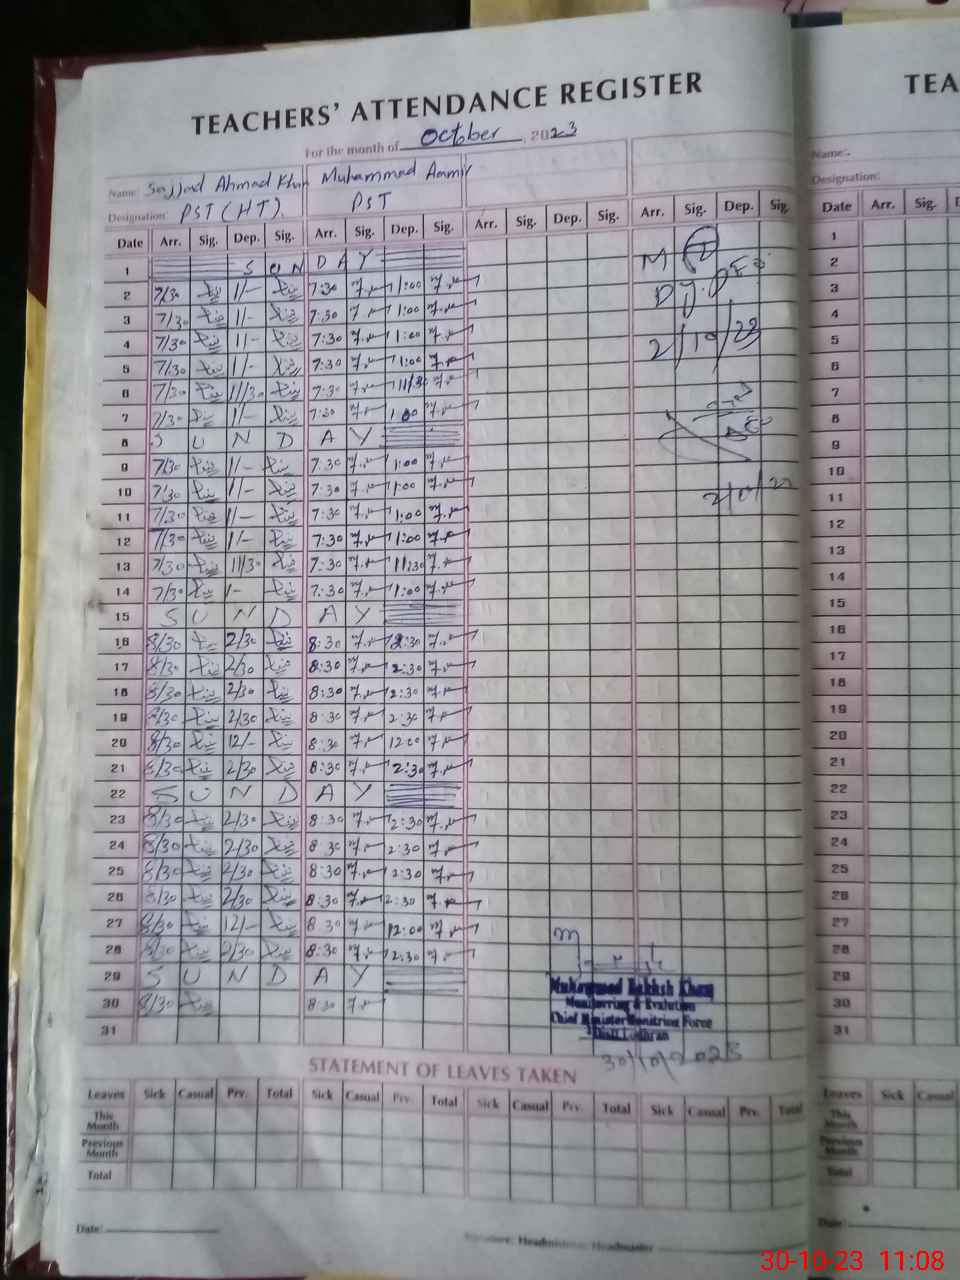 TEACHERS' ATTENDANCE REGISTER
For the month of October, 2023
Name: Sajjad Ahmad Khan Muhammad Aamir
Designation: PST (HT). PST
Date Arr. Sig. Dep. Sig. Arr. Sig. Dep. Sig. Arr. Sig. Dep. Sig. Arr. Sig. Dep. Sig.
1 S U N D A Y
2 7/30 1/- 7:30 1:00
3 7/30 1/- 7:30 1:00
4 7/30 1/- 7:30 1:00
5 7/30 1/- 7:30 1:00
6 7/30 11/30 7:30 11/30
7 7/30 1/- 7:30 1:00
8 S U N D A Y
9 7/30 1/- 7:30 1:00
10 7/30 1/- 7:30 1:00
11 7/30 1/- 7:30 1:00
12 7/30 1/- 7:30 1:00
13 7/30 11/30 7:30 11:30
14 7/30 1- 7:30 1:00
15 S U N D A Y
16 8/30 2/30 8:30 2:30
17 8/30 2/30 8:30 2:30
18 8/30 2/30 8:30 2:30
19 8/30 2/30 8:30 2:30
20 8/30 12/- 8:30 12:00
21 8/30 2/30 8:30 2:30
22 S U N D A Y
23 8/30 2/30 8:30 2:30
24 8/30 2/30 8:30 2:30
25 8/30 2/30 8:30 2:30
26 8/30 2/30 8:30 2:30
27 8/30 12/- 8:30 12:00
28 8/30 2/30 8:30 2:30
29 S U N D A Y
30 8/30 8:30
31
2/10/23
Muhammad Bakhsh Khan
Monitoring & Evalution
Chief Minister Monitring Force
Distt Lodhran
30/10/2023
STATEMENT OF LEAVES TAKEN
Leaves Sick Casual Prv. Total Sick Casual Prv. Total Sick Casual Prv. Total Sick Casual Prv. Total
This Month
Previous Month
Total
Date:
Signature: Headmistress/Headmaster
TEA
Name:
Designation:
Date Arr. Sig. D
1
2
3
4
5
6
7
8
9
10
11
12
13
14
15
16
17
18
19
20
21
22
23
24
25
26
27
28
29
30
31
Leaves Sick Casual
This Month
Previous Month
Total
Date:
30-10-23 11:08